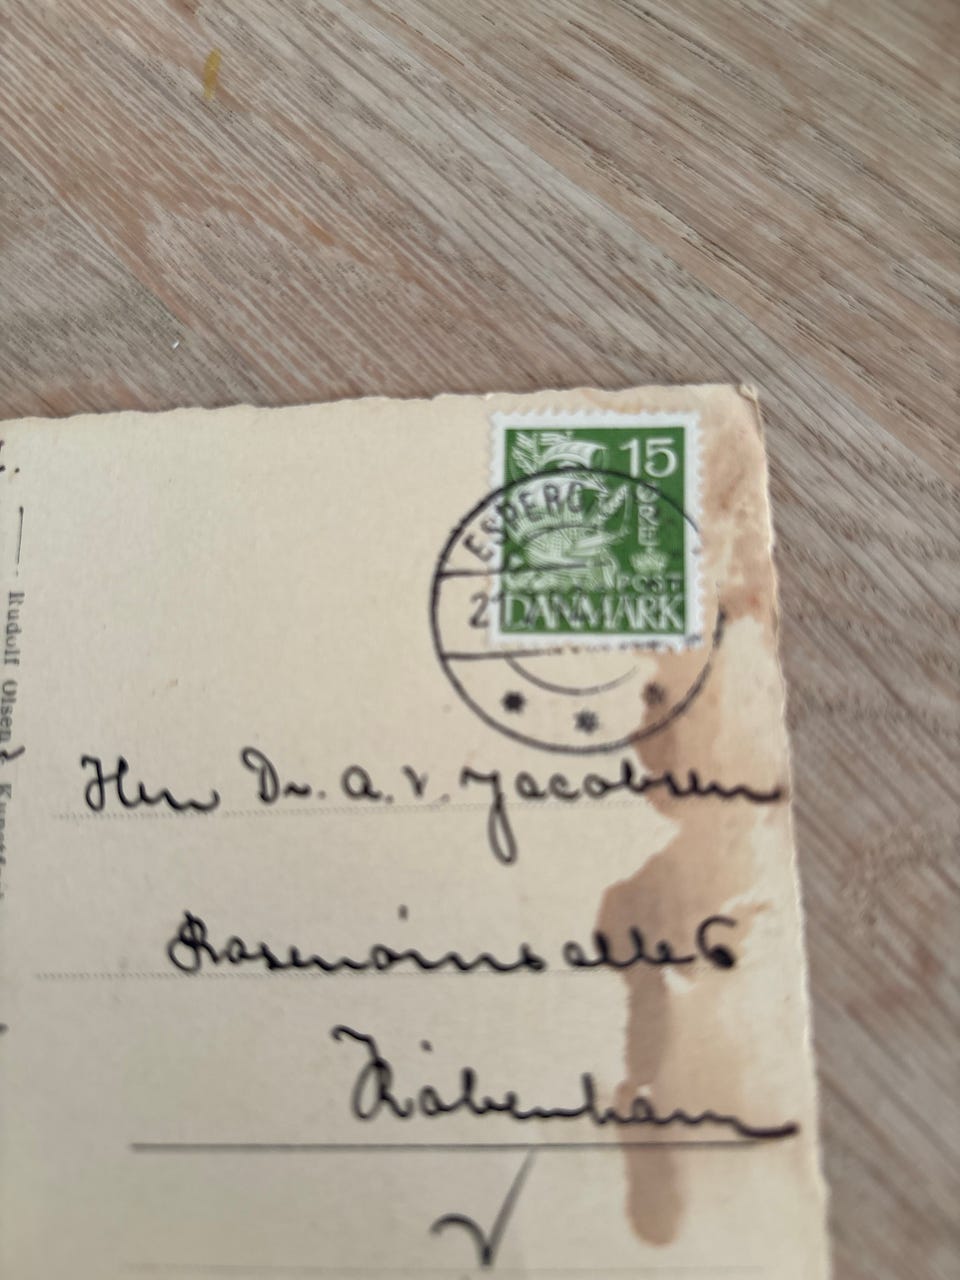 15
ØRE
POST
DANMARK
ESBERG
21
Rudolf Olsen
Herr Dr. A. V. Jacobsen
Rosenørns alle 6
København
V